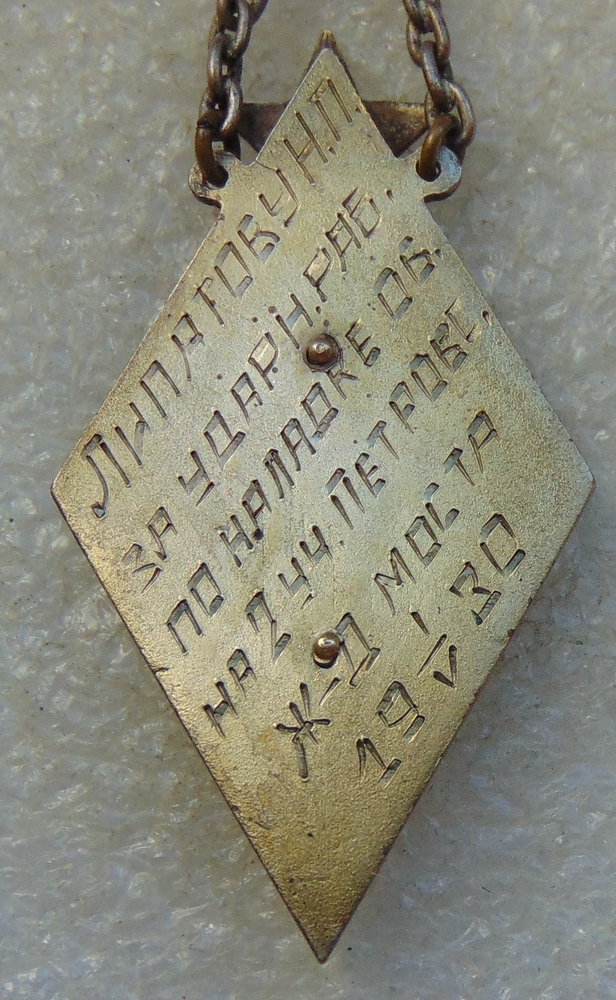 ЛИПАТОВУ Н.П.
ЗА УДАРН. РАБ.
ПО НАЛАДКЕ ОБ.
НА 2 УЧ. ПЕТРОВС.
Ж-Д МОСТА
19 I/V 30